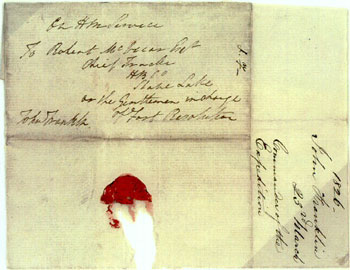 On HM Service
To Robert McVicar Esqr
Chief Trader
HBCo
Slave Lake
or the Gentleman in charge
of Fort Resolution
John Franklin
1826
John Franklin
23rd March
Commander of the
Expedition